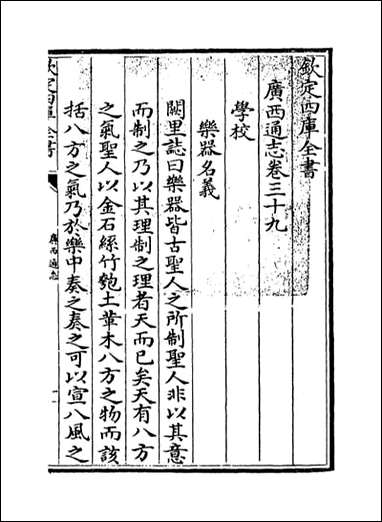 欽定四庫全書
廣西通志卷三十九
學校
樂器名義
闕里誌曰樂器皆古聖人之所制聖人非以其意
而制之乃以其理制之理者天而已矣天有八方
之氣聖人以金石絲竹匏土革木八方之物而該
括八方之氣乃於樂中奏之奏之可以宣八風之
欽定四庫全書
廣西通志